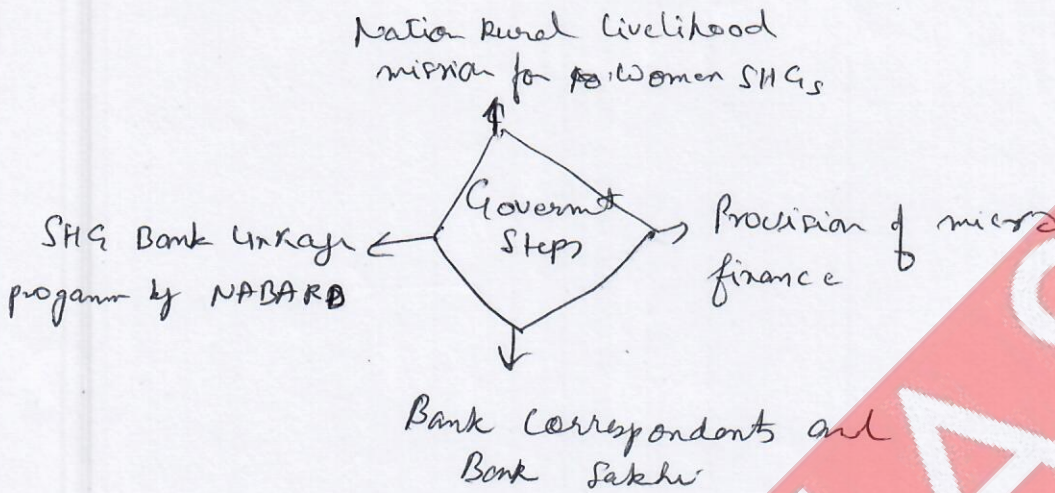 Nation Rural livelihood
mission for Women SHGs
Governmt
Steps
SHG Bank linkage
progamm by NABARD
Provision of micro
finance
Bank Correspondents and
Bank Sakhi